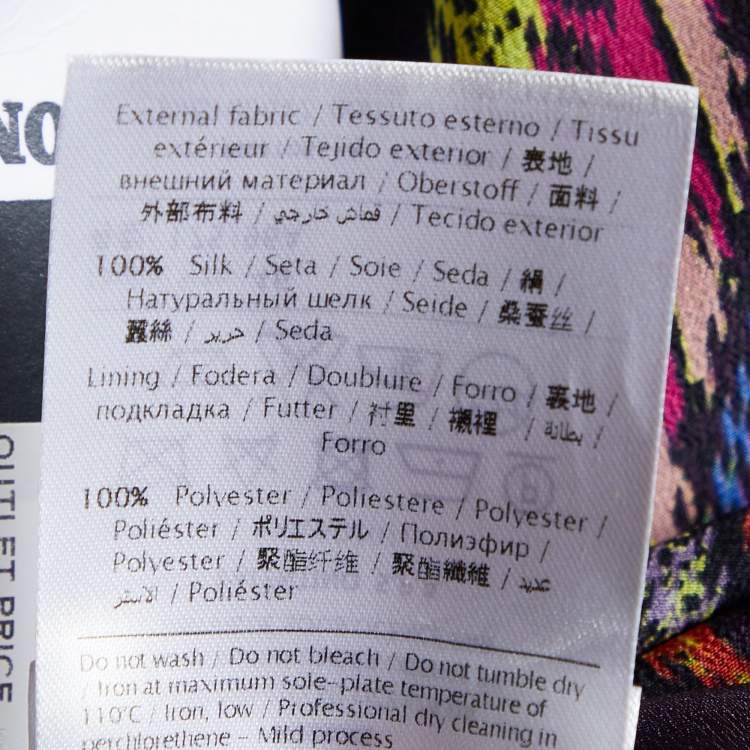 External fabric / Tessuto esterno / Tissu
extérieur / Tejido exterior / 表地 /
внешний материал / Oberstoff / 面料 /
外部布料 / قماش خارجي / Tecido exterior
100% Silk / Seta / Soie / Seda / 絹 /
Натуральный шелк / Seide / 桑蚕丝 /
蠶絲 / حرير / Seda
Lining / Fodera / Doublure / Forro / 裏地 /
подкладка / Futter / 衬里 / 襯裡 / بطانة /
Forro
100% Polyester / Poliestere / Polyester /
Poliéster / ポリエステル / Полиэфир /
Polyester / 聚酯纤维 / 聚酯纖維 / عديد
الاستر / Poliéster
Do not wash / Do not bleach / Do not tumble dry
/ Iron at maximum sole-plate temperature of
110°C / Iron, low / Professional dry cleaning in
perchlorethene - Mild process
OUTLET PRICE
NO